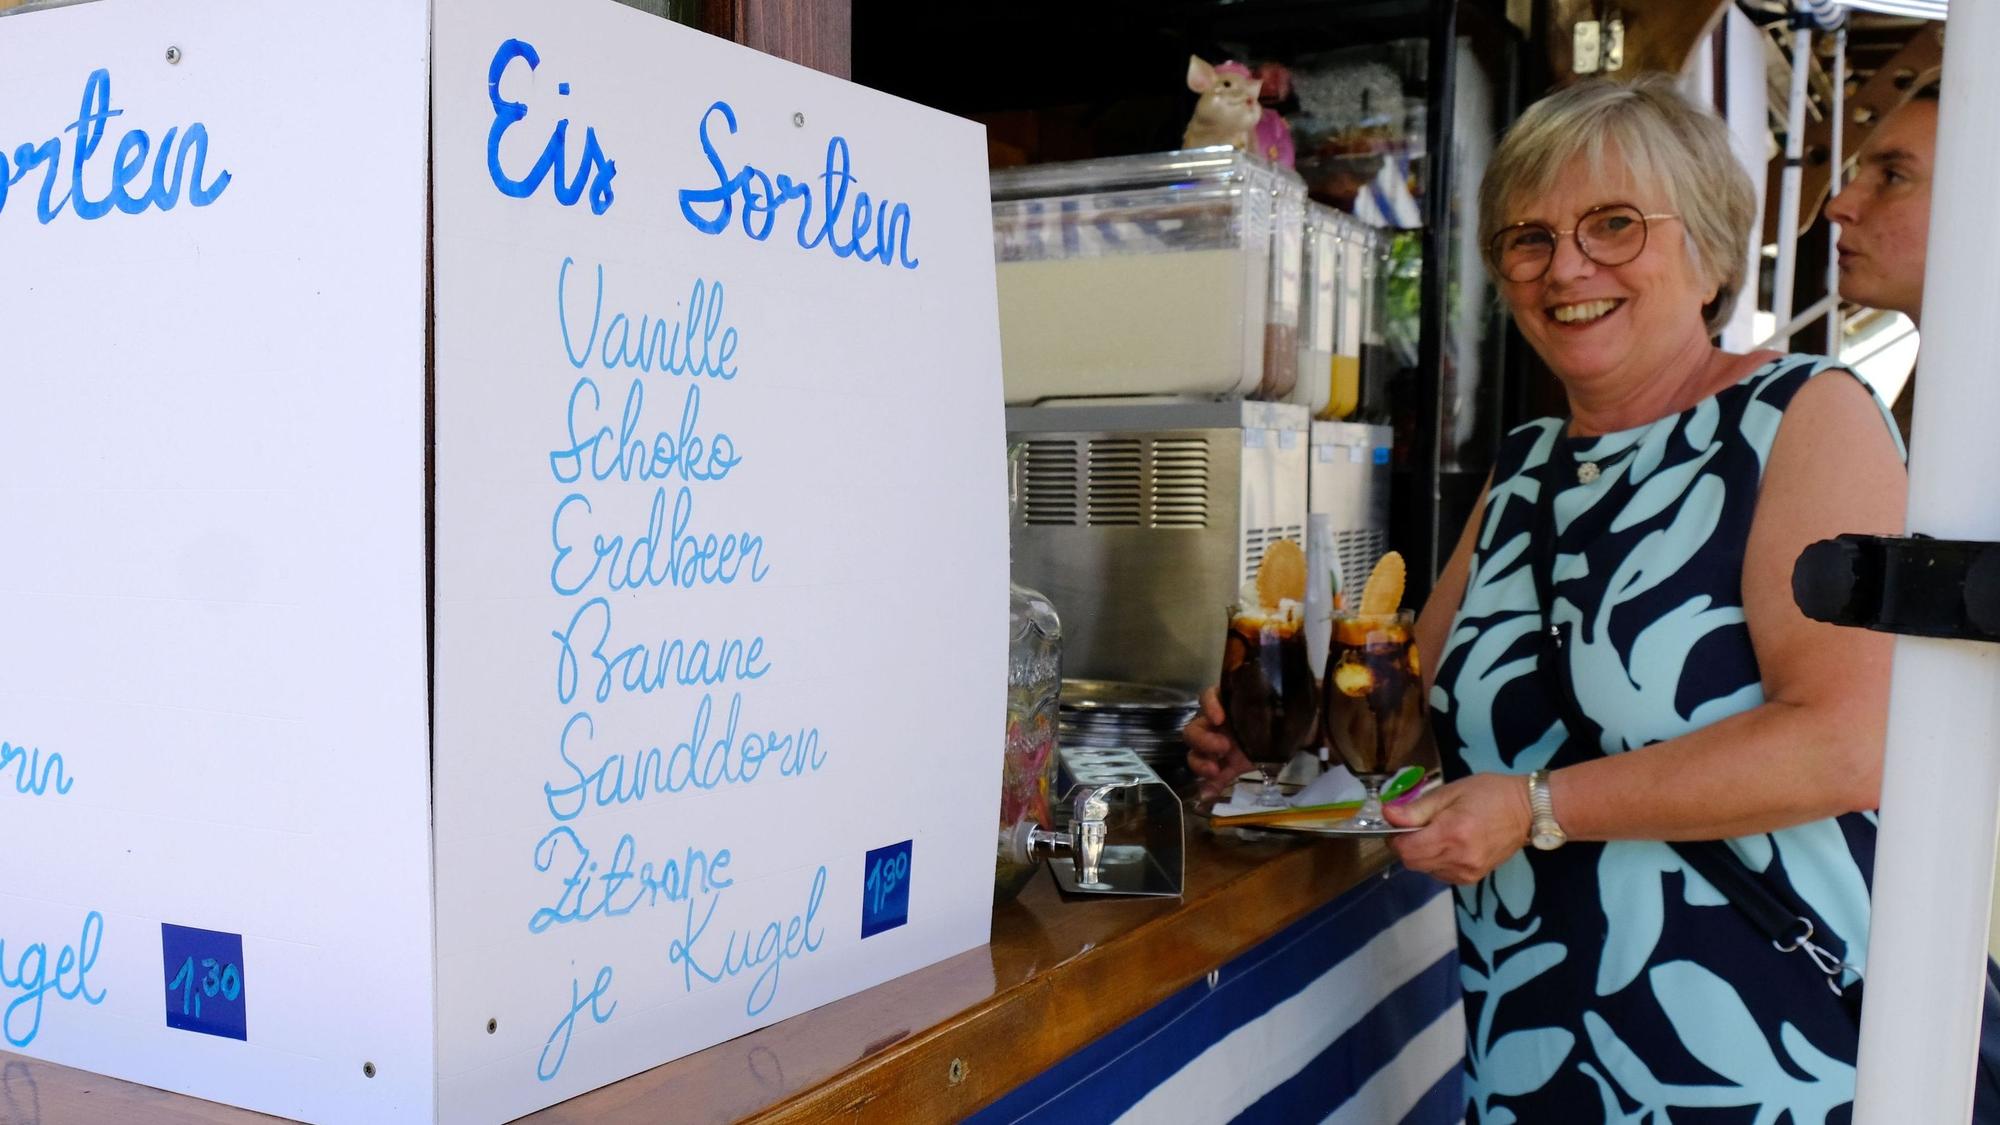 Eis Sorten
Vanille
Schoko
Erdbeer
Banane
Sanddorn
Zitrone
je Kugel 1,30
1,30